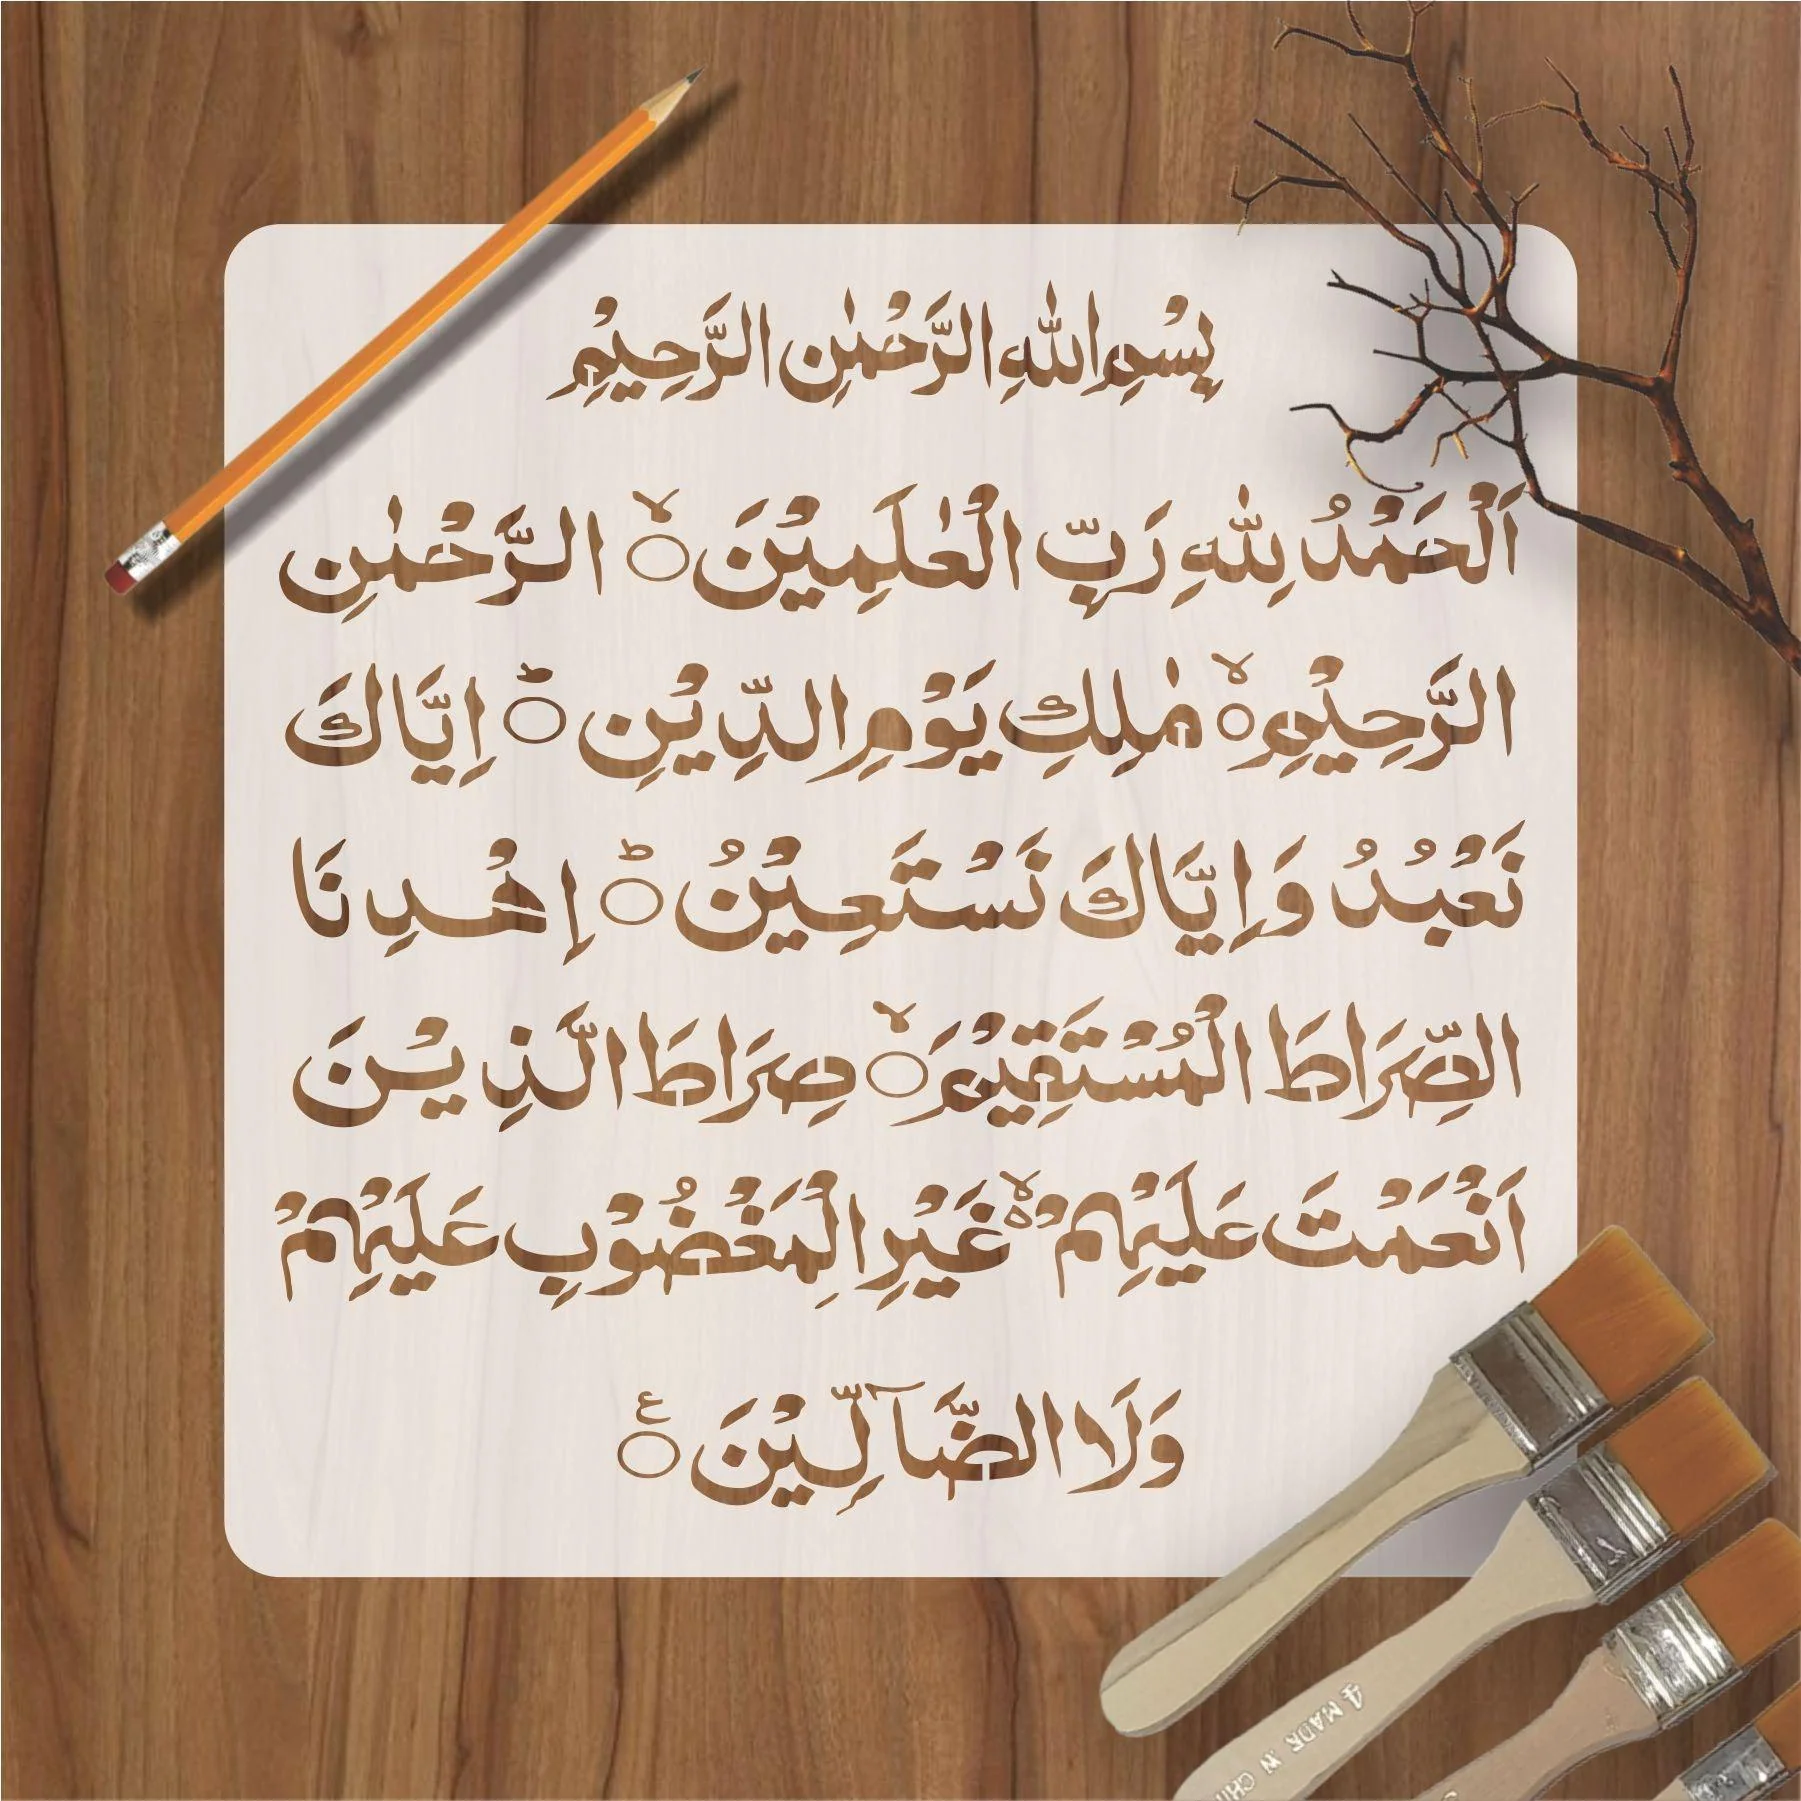 بِسْمِ اللّٰهِ الرَّحْمٰنِ الرَّحِيْمِ
اَلْحَمْدُ لِلّٰهِ رَبِّ الْعٰلَمِيْنَ ۙ الرَّحْمٰنِ
الرَّحِيْمِ ۙ مٰلِكِ يَوْمِ الدِّيْنِ ؕ اِيَّاكَ
نَعْبُدُ وَاِيَّاكَ نَسْتَعِيْنُ ؕ اِهْدِنَا
الصِّرَاطَ الْمُسْتَقِيْمَ ۙ صِرَاطَ الَّذِيْنَ
اَنْعَمْتَ عَلَيْهِمْ ۙ۬ غَيْرِ الْمَغْضُوْبِ عَلَيْهِمْ
وَلَا الضَّآلِّيْنَ ۧ
4 MADE IN